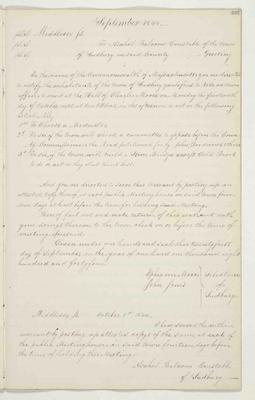 September 1844.
Middlesex ss.
To Asahel Balcom Constable of the town
of Sudbury in said County Greeting
In the name of the Commonwealth of Massachusetts you are directed
to notify the inhabitants of the town of Sudbury qualified to vote in town
affairs to meet at the Hall of on Monday the fourteenth
day of October next at two o'clock in the afternoon to act on the following
Articles Viz
1st To Choose a Moderator
2d To see if the town will choose a committee to appear before the County
Commissioners on the Road petitioned for by John and others
3d To see if the town will build a Stone Bridge Brook
to do or act
And you are directed to serve this Warrant by posting up an
attested copy thereof at each public Meetinghouse in said town fourteen
days at least before the time for holding said Meeting.
Hereof fail not and make return of this warrant with
your doings thereon to the town clerk on or before the time of
meeting aforesaid.
Given under our hands and seals this twenty fourth
day of September in the year of our Lord one thousand eight
hundred and forty four.
Ephraim Moore
John
Selectmen
of
Sudbury
Middlesex ss October 1844.
I have served the within
warrant by posting up attested copies of the same at each of
the public Meetinghouses in said town fourteen days before
the time of holding said Meeting.
Asahel Balcom Constable
of Sudbury